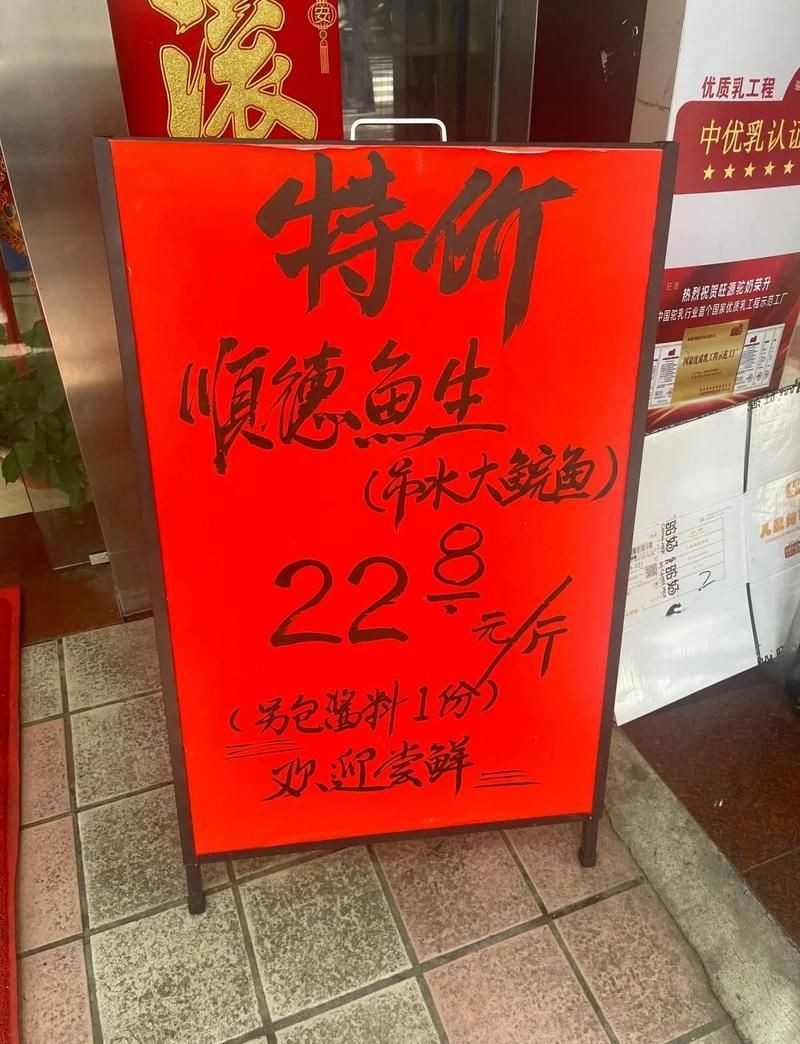 滚
安
特价
順德魚生
(吊水大鲩鱼)
22.8元/斤
(另包酱料1份)
欢迎尝鲜
优质乳工程
中优乳认证
热烈祝贺旺源驼奶荣升
中国驼乳行业首个国家优质乳工程示范工厂
国家优质乳工程示范工厂
2